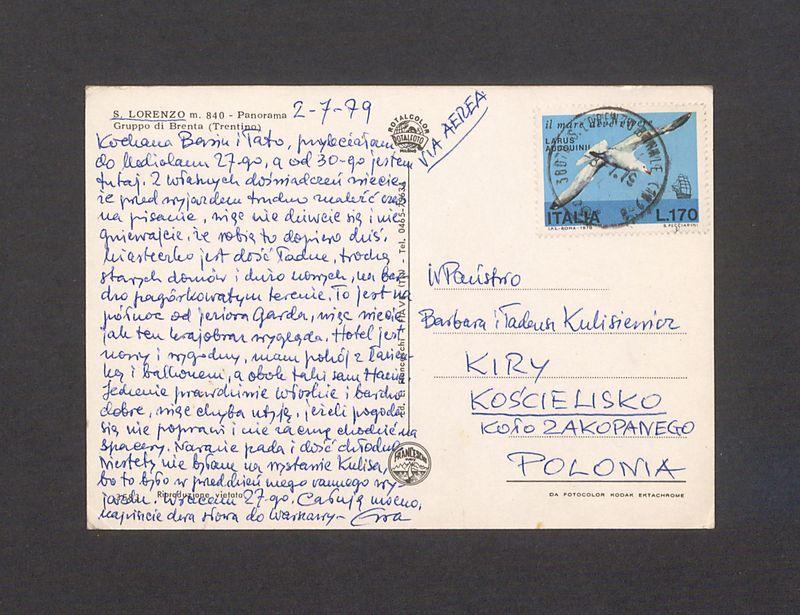 S. LORENZO m. 840 - Panorama
Gruppo di Brenta (Trentino)
2-7-79
Kochana Basiu i Tato, przyleciałam
do Mediolanu 27-go, a od 30-go jestem
tutaj. Z własnych doświadczeń wiecie
że przed wyjazdem trudno znaleźć czas
na pisanie, więc nie dziwcie się i nie
gniewajcie, że robię to dopiero dziś.
Miasteczko jest dość ładne, trochę
starych domów i dużo nowych, na bar-
dzo pagórkowatym terenie. To jest na
północ od jeziora Garda, więc wiecie
jak ten krajobraz wygląda. Hotel jest
nowy i wygodny, mam pokój z łazien-
ką i balkonem, a obok taki sam
Jedzenie prawdziwie włoskie i bardzo
dobre, więc chyba utyję, jeżeli pogoda
się nie poprawi i nie zacznę chodzić na
spacery. Narazie pada i dość chłodno.
Niestety nie byłam na wystawie Kulisa
bo to było w przeddzień mego rannego wy-
jazdu. Wracam 27-go. Całuję mocno,
napiszcie dwa słowa do Warszawy - Ewa
Riproduzione vietata
ROTALCOLOR
ROTALFOTO
VIA AEREA
FIAVÈ (TN) - Tel. 0465-
FRANCESCHI
il mare deve vivere
LARUS
AUDOUINII
ITALIA
L.170
I.P.S.-ROMA-1978
E. PECCIARINI
W Państwo
Barbara i Tadeusz Kulisiewicz
KIRY
KOŚCIELISKO
KOŁO ZAKOPANEGO
POLONIA
DA FOTOCOLOR KODAK EKTACHROME